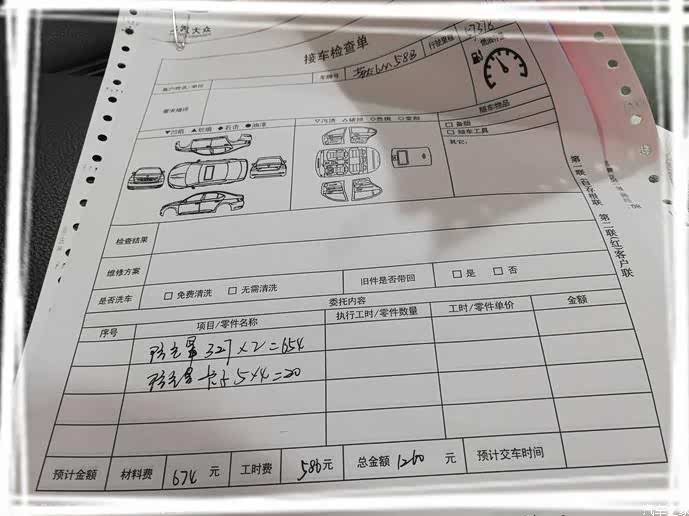 一汽大众
接车检查单
车牌号 行驶里程 17318
客户姓名/单位
要求描述
▼凹陷 ▲划痕 ◆石击 ●油漆
▽污渍 △破损 ◇色斑 ○变形
随车物品
□ 备胎
□ 随车工具
其它:
检查结果
维修方案
旧件是否带回 □ 是 □ 否
是否洗车 □ 免费清洗 □ 无需清洗
委托内容
序号 项目/零件名称 执行工时/零件数量 工时/零件单价 金额
327×2=654
卡子5×4=20
预计金额 材料费 674 元 工时费 586元 总金额 1260 元 预计交车时间
第一联(白)存根联 第二联(红)客户联